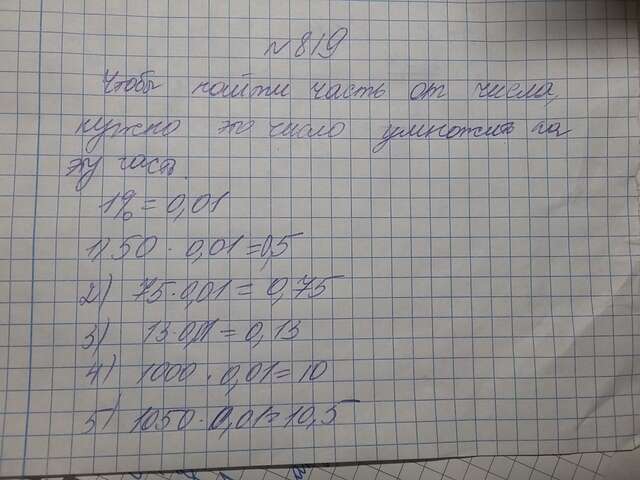 №819
Чтобы найти часть от числа,
нужно это число умножить на
эту часть.
1% = 0,01
1) 50 · 0,01 = 0,5
2) 75 · 0,01 = 0,75
3) 13 · 0,01 = 0,13
4) 1000 · 0,01 = 10
5) 1050 · 0,01 = 10,5